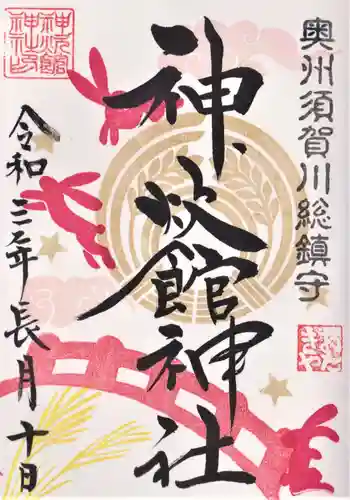 奥州須賀川総鎮守
神炊館神社
令和三年長月十日
神炊館
神社印